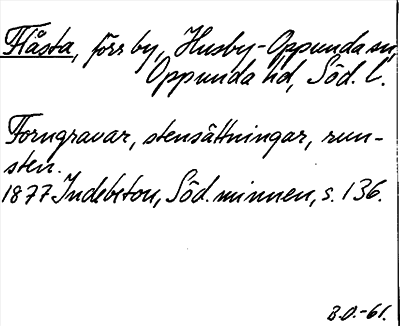 Flåsta, förr by, Husby-Oppunda sn,
Oppunda hd, Söd. l.
Forngravar, stensättningar, run-
sten.
1877 Indebetou, Söd. minnen, s. 136.
B.D.-61.